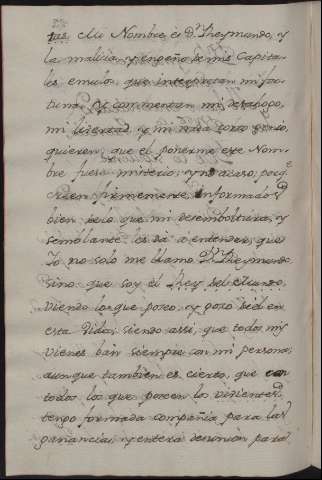 Mi Nombre, es Dn. Rheymundo, y
la malicia, y empeño de mis Capita-
les emulos, que interpretan mi for-
tuna, y comentan mi desahogo,
mi livertad, y mi nada corto genio,
quieren, que el ponerme ese Nom-
bre fuese misterio, y no acaso, porqe
creen firmemente, informados
bien de lo que mi desemboltura, y
semblante les dá á entender, que
Yo no solo me llamo Dn. Rheymundo
sino que soy el Rey del Mundo,
viendo lo que poseo, y gozo de él en
esta vida; siendo assi, que todos mis
vienes ván siempre con mi persona;
aunque tambien es cierto, que con
todos los que poseen los vivientes
tengo formada compañia para las
ganancias, y entera desunion para